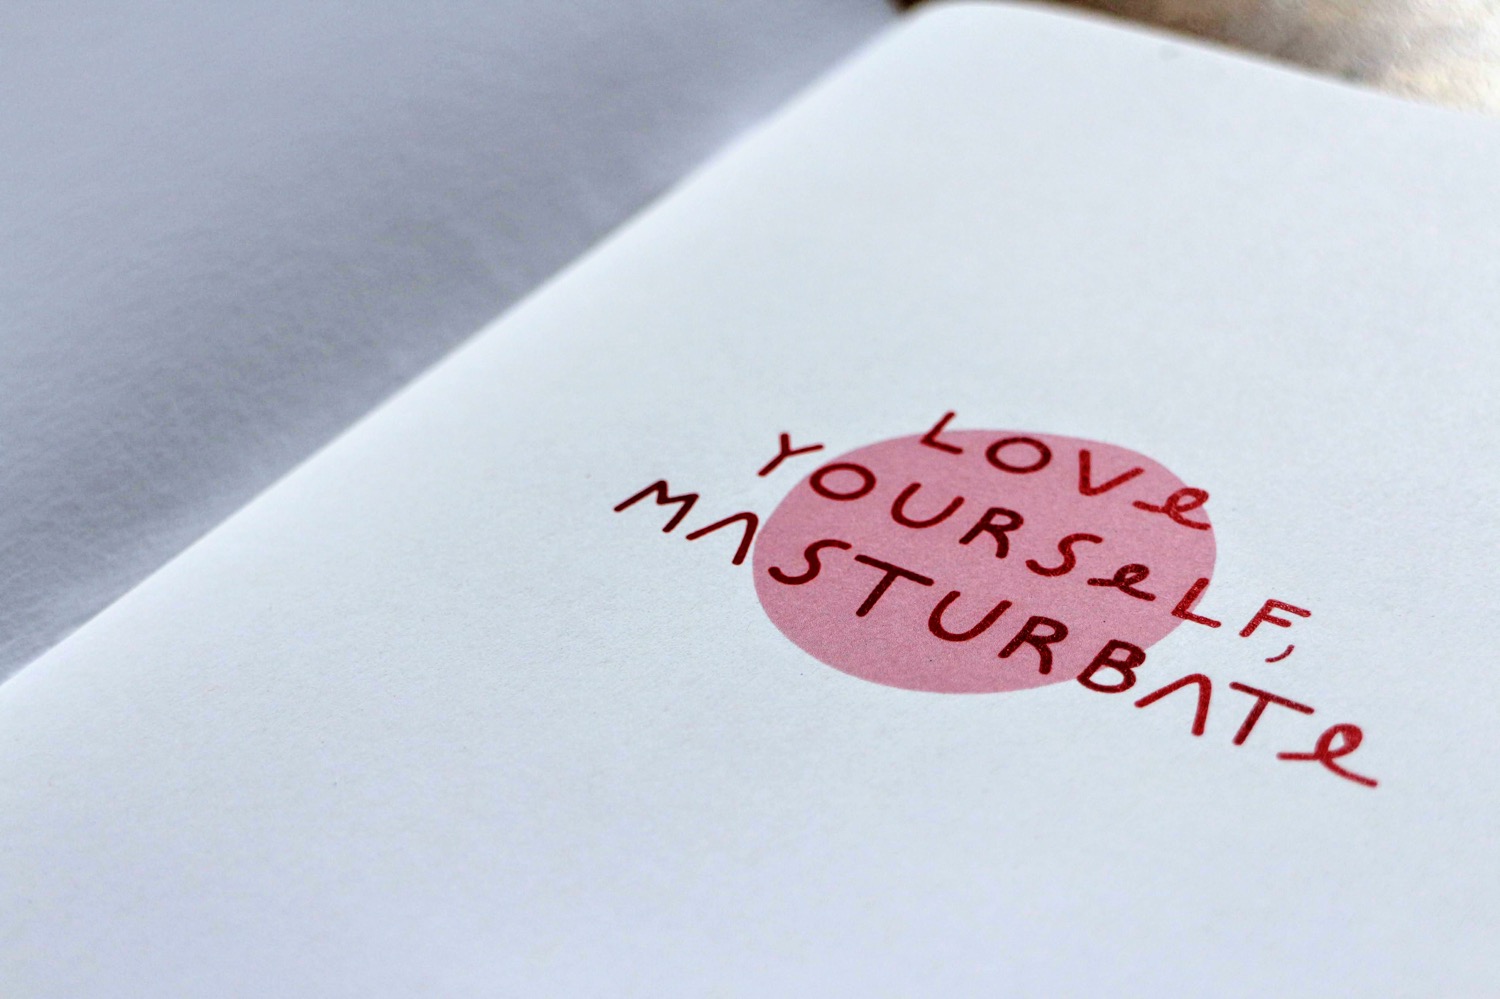 LOVe
YOURSeLF,
MASTURBATe